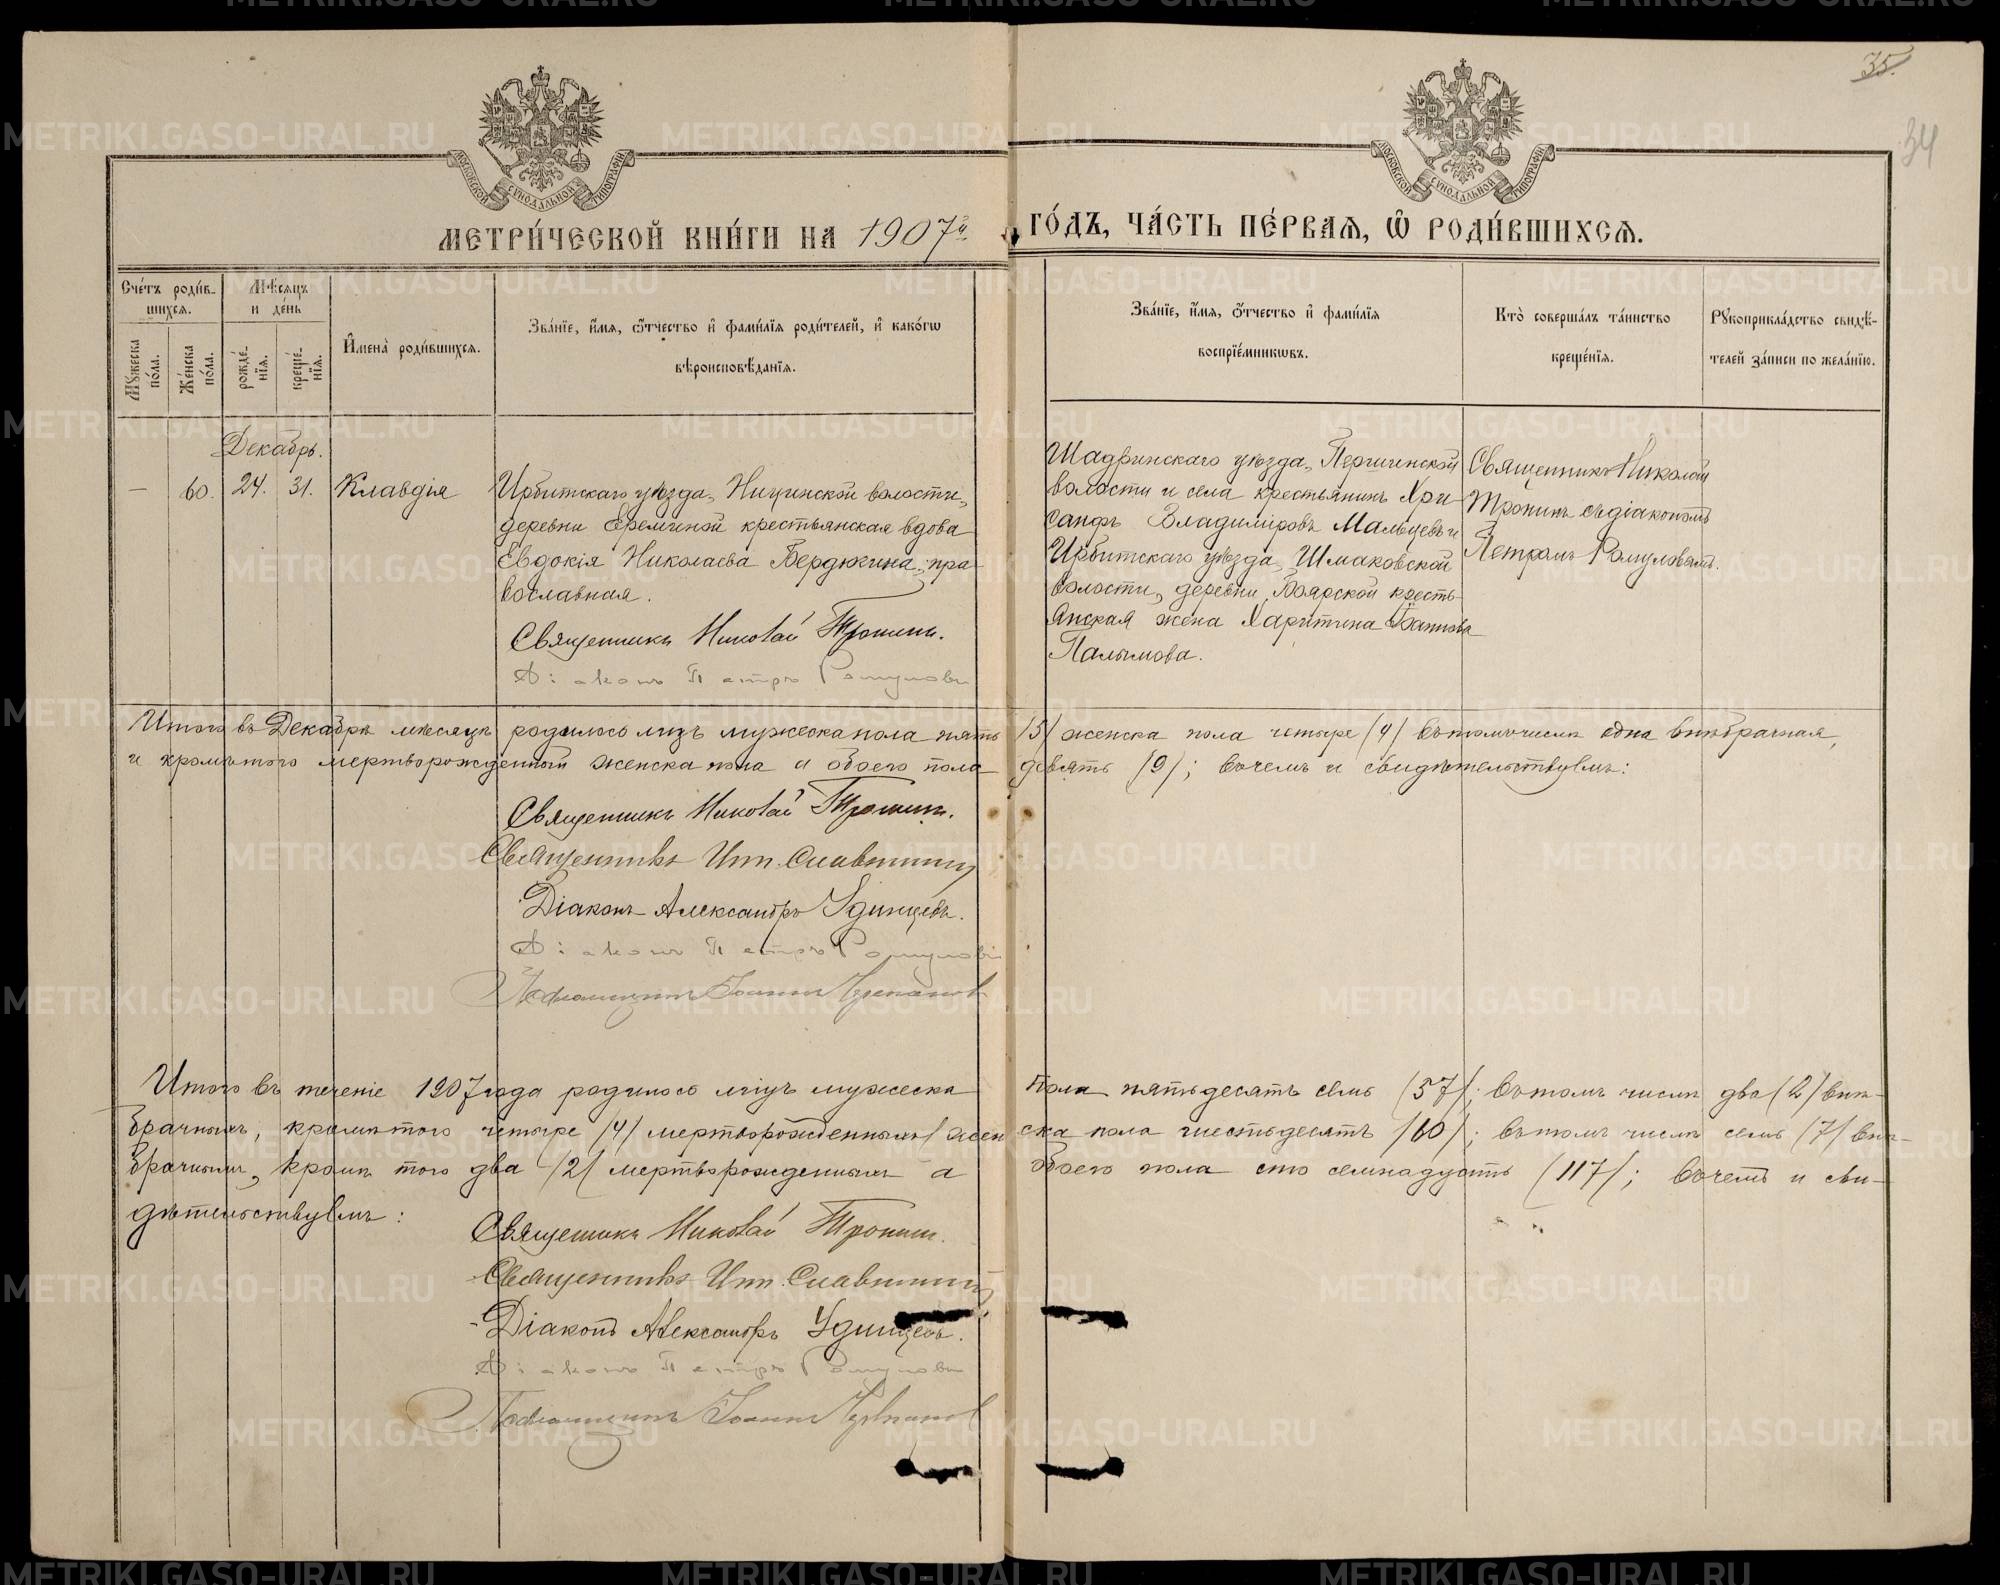 35.
34
МОСКОВСКОЙ СѴНОДАЛЬНОЙ ТИПОГРАФІИ
МОСКОВСКОЙ СѴНОДАЛЬНОЙ ТИПОГРАФІИ
МЕТРИ́ЧЕСКОЙ КНИ́ГИ НА 1907й ГО́ДЪ, ЧА́СТЬ ПЕ́РВАѦ, Ѡ҆ РОДИ́ВШИХСѦ.
Сче́тъ роди́в-
шихсѧ.
Мѣ́сѧцъ
и де́нь
Мꙋ́жеска по́ла.
Же́нска по́ла.
рожде́-нїѧ.
креще́-нїѧ.
И҆мена̀ роди́вшихсѧ.
Зва́нїе, и҆́мѧ, ѻ҆́тчество и҆ фами́лїѧ роди́телей, и҆ како́гѡ
вѣроисповѣ́данїѧ.
Зва́нїе, и҆́мѧ, ѻ҆́тчество и҆ фами́лїѧ
воспрїе́мникѡвъ.
Кто̀ соверша́лъ та́инство
креще́нїѧ.
Рꙋкоприкла́дство свидѣ́-
телей за́писи по жела́нїю.
Декабрь.
— 60. 24. 31. Клавдія
Ирбитскаго уѣзда, Ницинской волости,
деревни Еремчиной крестьянская вдова
Евдокія Николаева Бердюгина; пра-
вославная.
Священникъ Николай Тронинъ.
Діаконъ Петръ Ромуловъ
Шадринскаго уѣзда, Першинской
волости и села крестьянинъ Хри-
санфъ Владиміровъ Мальцевъ и
Ирбитскаго уѣзда, Шмаковской
волости, деревни Боярской кресть-
янская жена Харитина
Палымова.
Священникъ Николай
Тронинъ съ діакономъ
Петромъ Ромуловымъ.
Итого въ Декабрѣ мѣсяцѣ родилось лицъ мужеска пола пять /5/ женска пола четыре /4/ въ томъ числѣ одна внѣбрачная,
и кромѣ того мертворожденный женска пола а обоего пола девять /9/; въ чемъ и свидѣтельствуемъ:
Священникъ Николай Тронинъ.
Священникъ Ипп. Славнинъ
Діаконъ Александръ Удинцевъ.
Діаконъ Петръ Ромуловъ
Псаломщикъ Іоаннъ Черепановъ
Итого въ теченіе 1907 года родилось лицъ мужеска пола пятьдесятъ семь /57/; въ томъ числѣ два /2/ внѣ-
брачныхъ, кромѣ того четыре /4/ мертворожденныхъ; женска пола шестьдесятъ /60/; въ томъ числѣ семь /7/ внѣ-
брачныхъ, кромѣ того два /2/ мертворожденныхъ а обоего пола сто семнадцать /117/; въ чемъ и сви-
дѣтельствуемъ:
Священникъ Николай Тронинъ.
Священникъ Ипп. Славнинъ
Діаконъ Александръ Удинцевъ.
Діаконъ Петръ Ромуловъ
Псаломщикъ Іоаннъ Черепановъ
METRIKI.GASO-URAL.RU